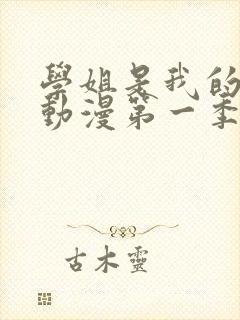 學姐是我的
動漫第一季
古木靈